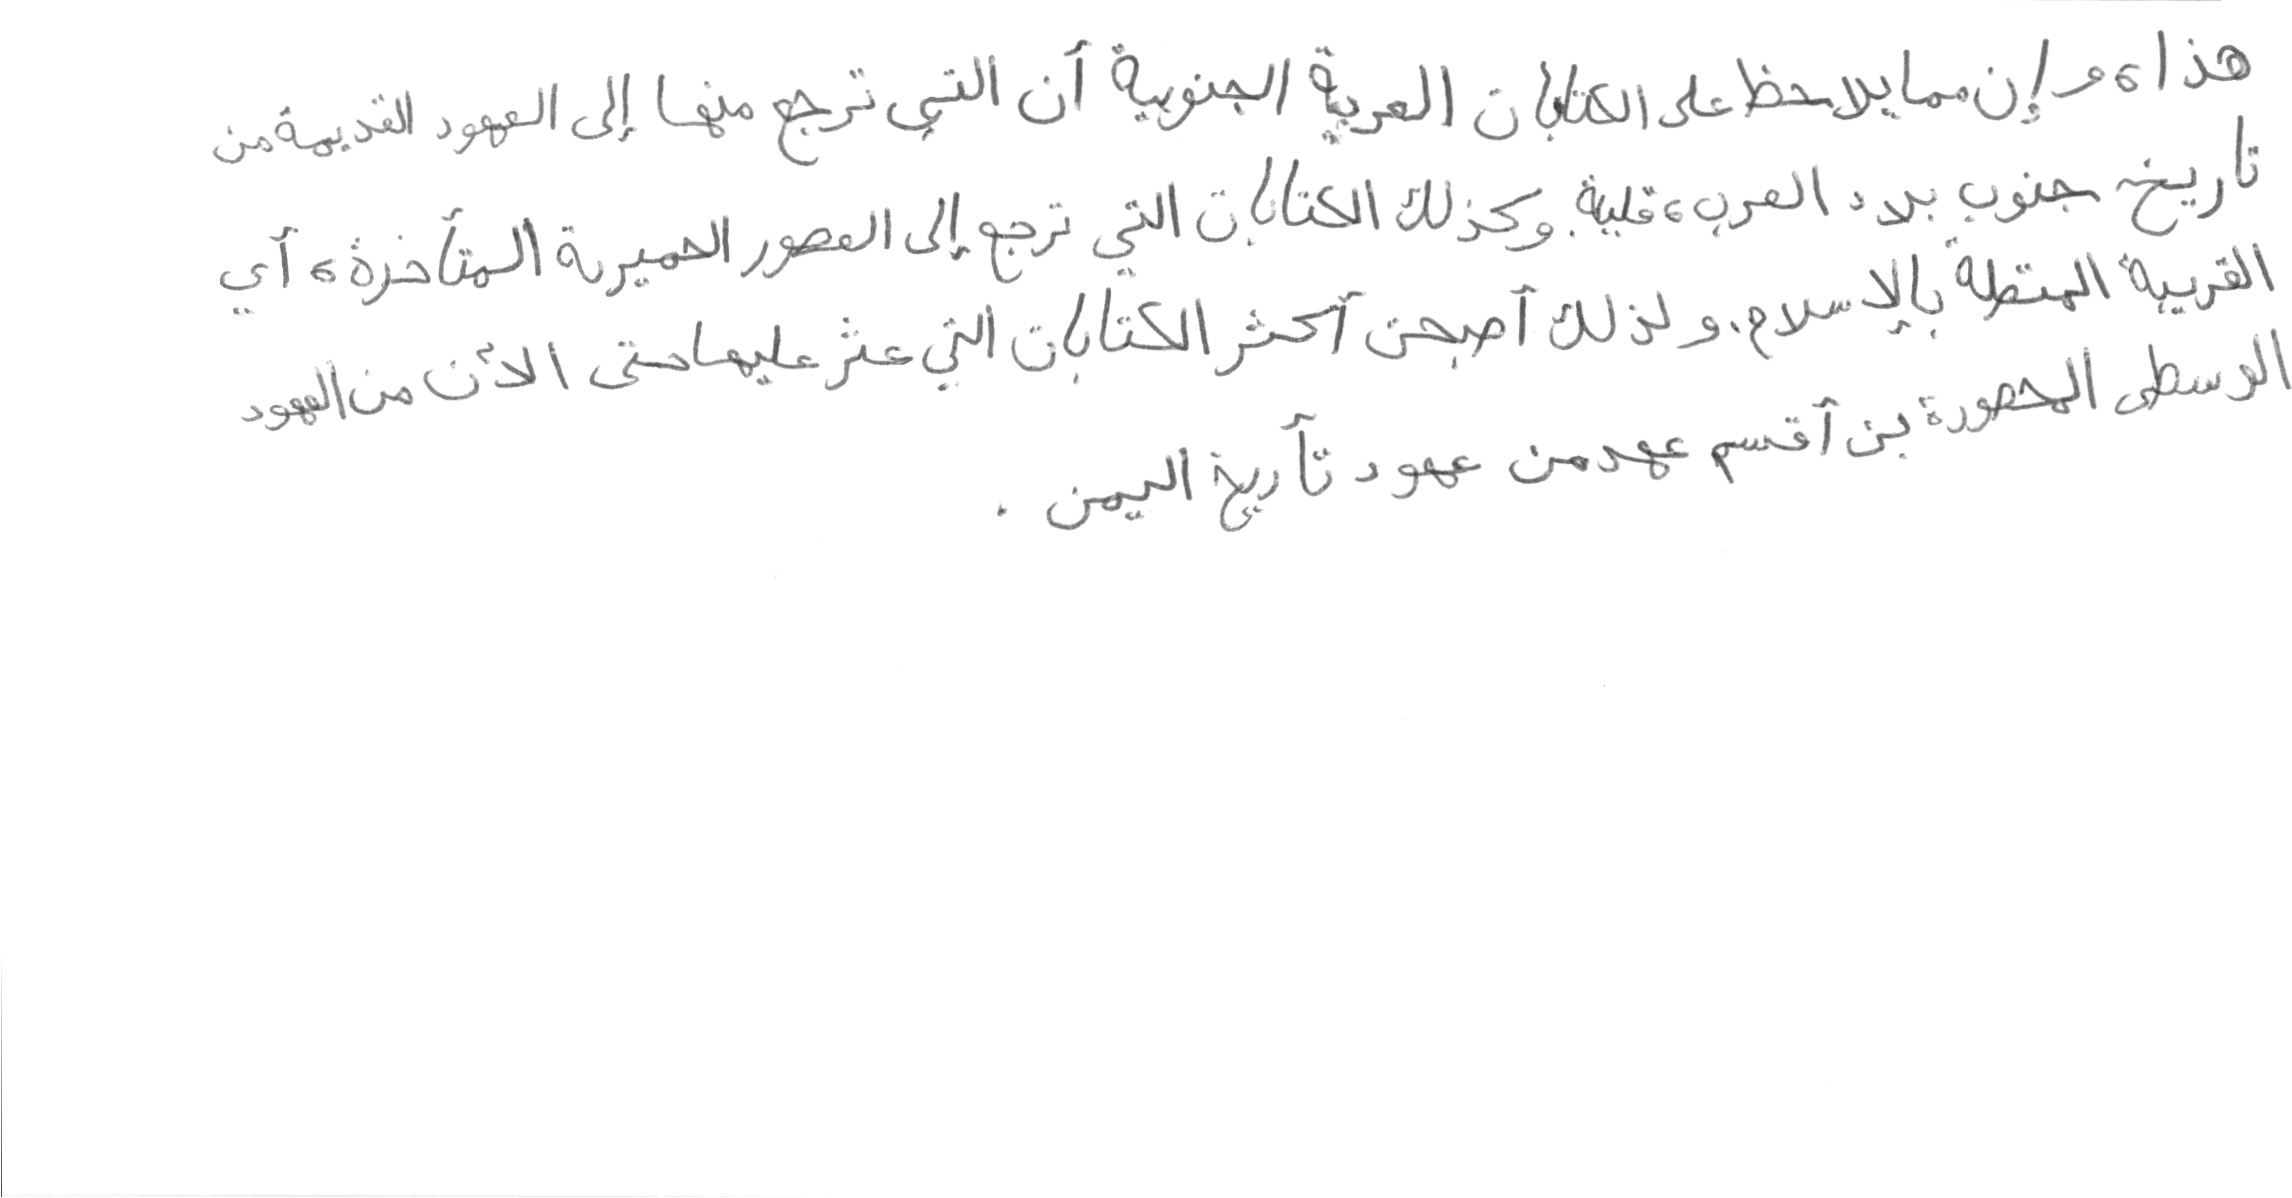 هذا، وإن مما يلاحظ على الكتابات العربية الجنوبية أن التي ترجع منها إلى العهود القديمة من
تاريخ جنوب بلاد العرب، قليلة. وكذلك الكتابات التي ترجع إلى العصور الحميرية المتأخرة، أي
القريبة المتصلة بالإسلام. ولذلك أصبحت أكثر الكتابات التي عثر عليها حتى الآن من العهود
الوسطى المحصورة بين أقسم عهد من عهود تأريخ اليمن .